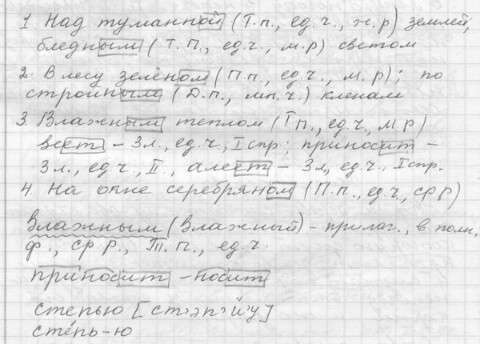 1. Над туманной (Т.п., ед.ч., ж.р) землей,
бледным (Т.п., ед.ч., м.р) светом
2. В лесу зелёном (П.п., ед.ч., м.р); по
стройным (Д.п., мн.ч.) кленам
3. Влажным теплом (Тп., ед.ч., м.р)
веет – 3л., ед.ч, I спр; приносит –
3л., ед.ч, II., алеет – 3л, ед.ч. I спр.
4. На огне серебряном (П.п., ед.ч, ср р)
Влажным (влажный) – прилаг., в полн,
ф., ср р., Т.п., ед.ч.
приносит – носит
степью [ст'эп'й'у]
степь-ю